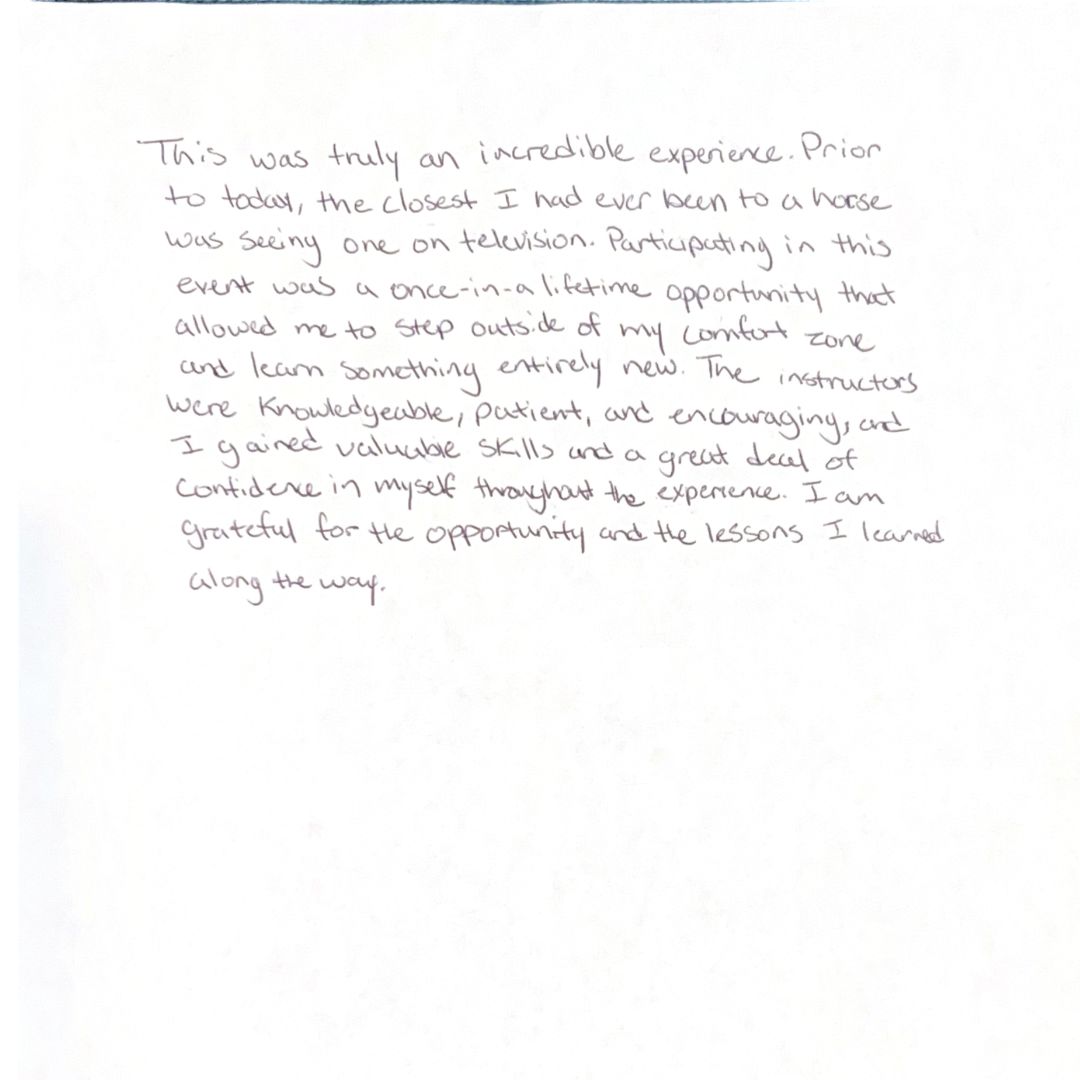 This was truly an incredible experience. Prior
to today, the closest I had ever been to a horse
was seeing one on television. Participating in this
event was a once-in-a lifetime opportunity that
allowed me to step outside of my comfort zone
and learn something entirely new. The instructors
were knowledgeable, patient, and encouraging, and
I gained valuable skills and a great deal of
confidence in myself throughout the experience. I am
grateful for the opportunity and the lessons I learned
along the way.